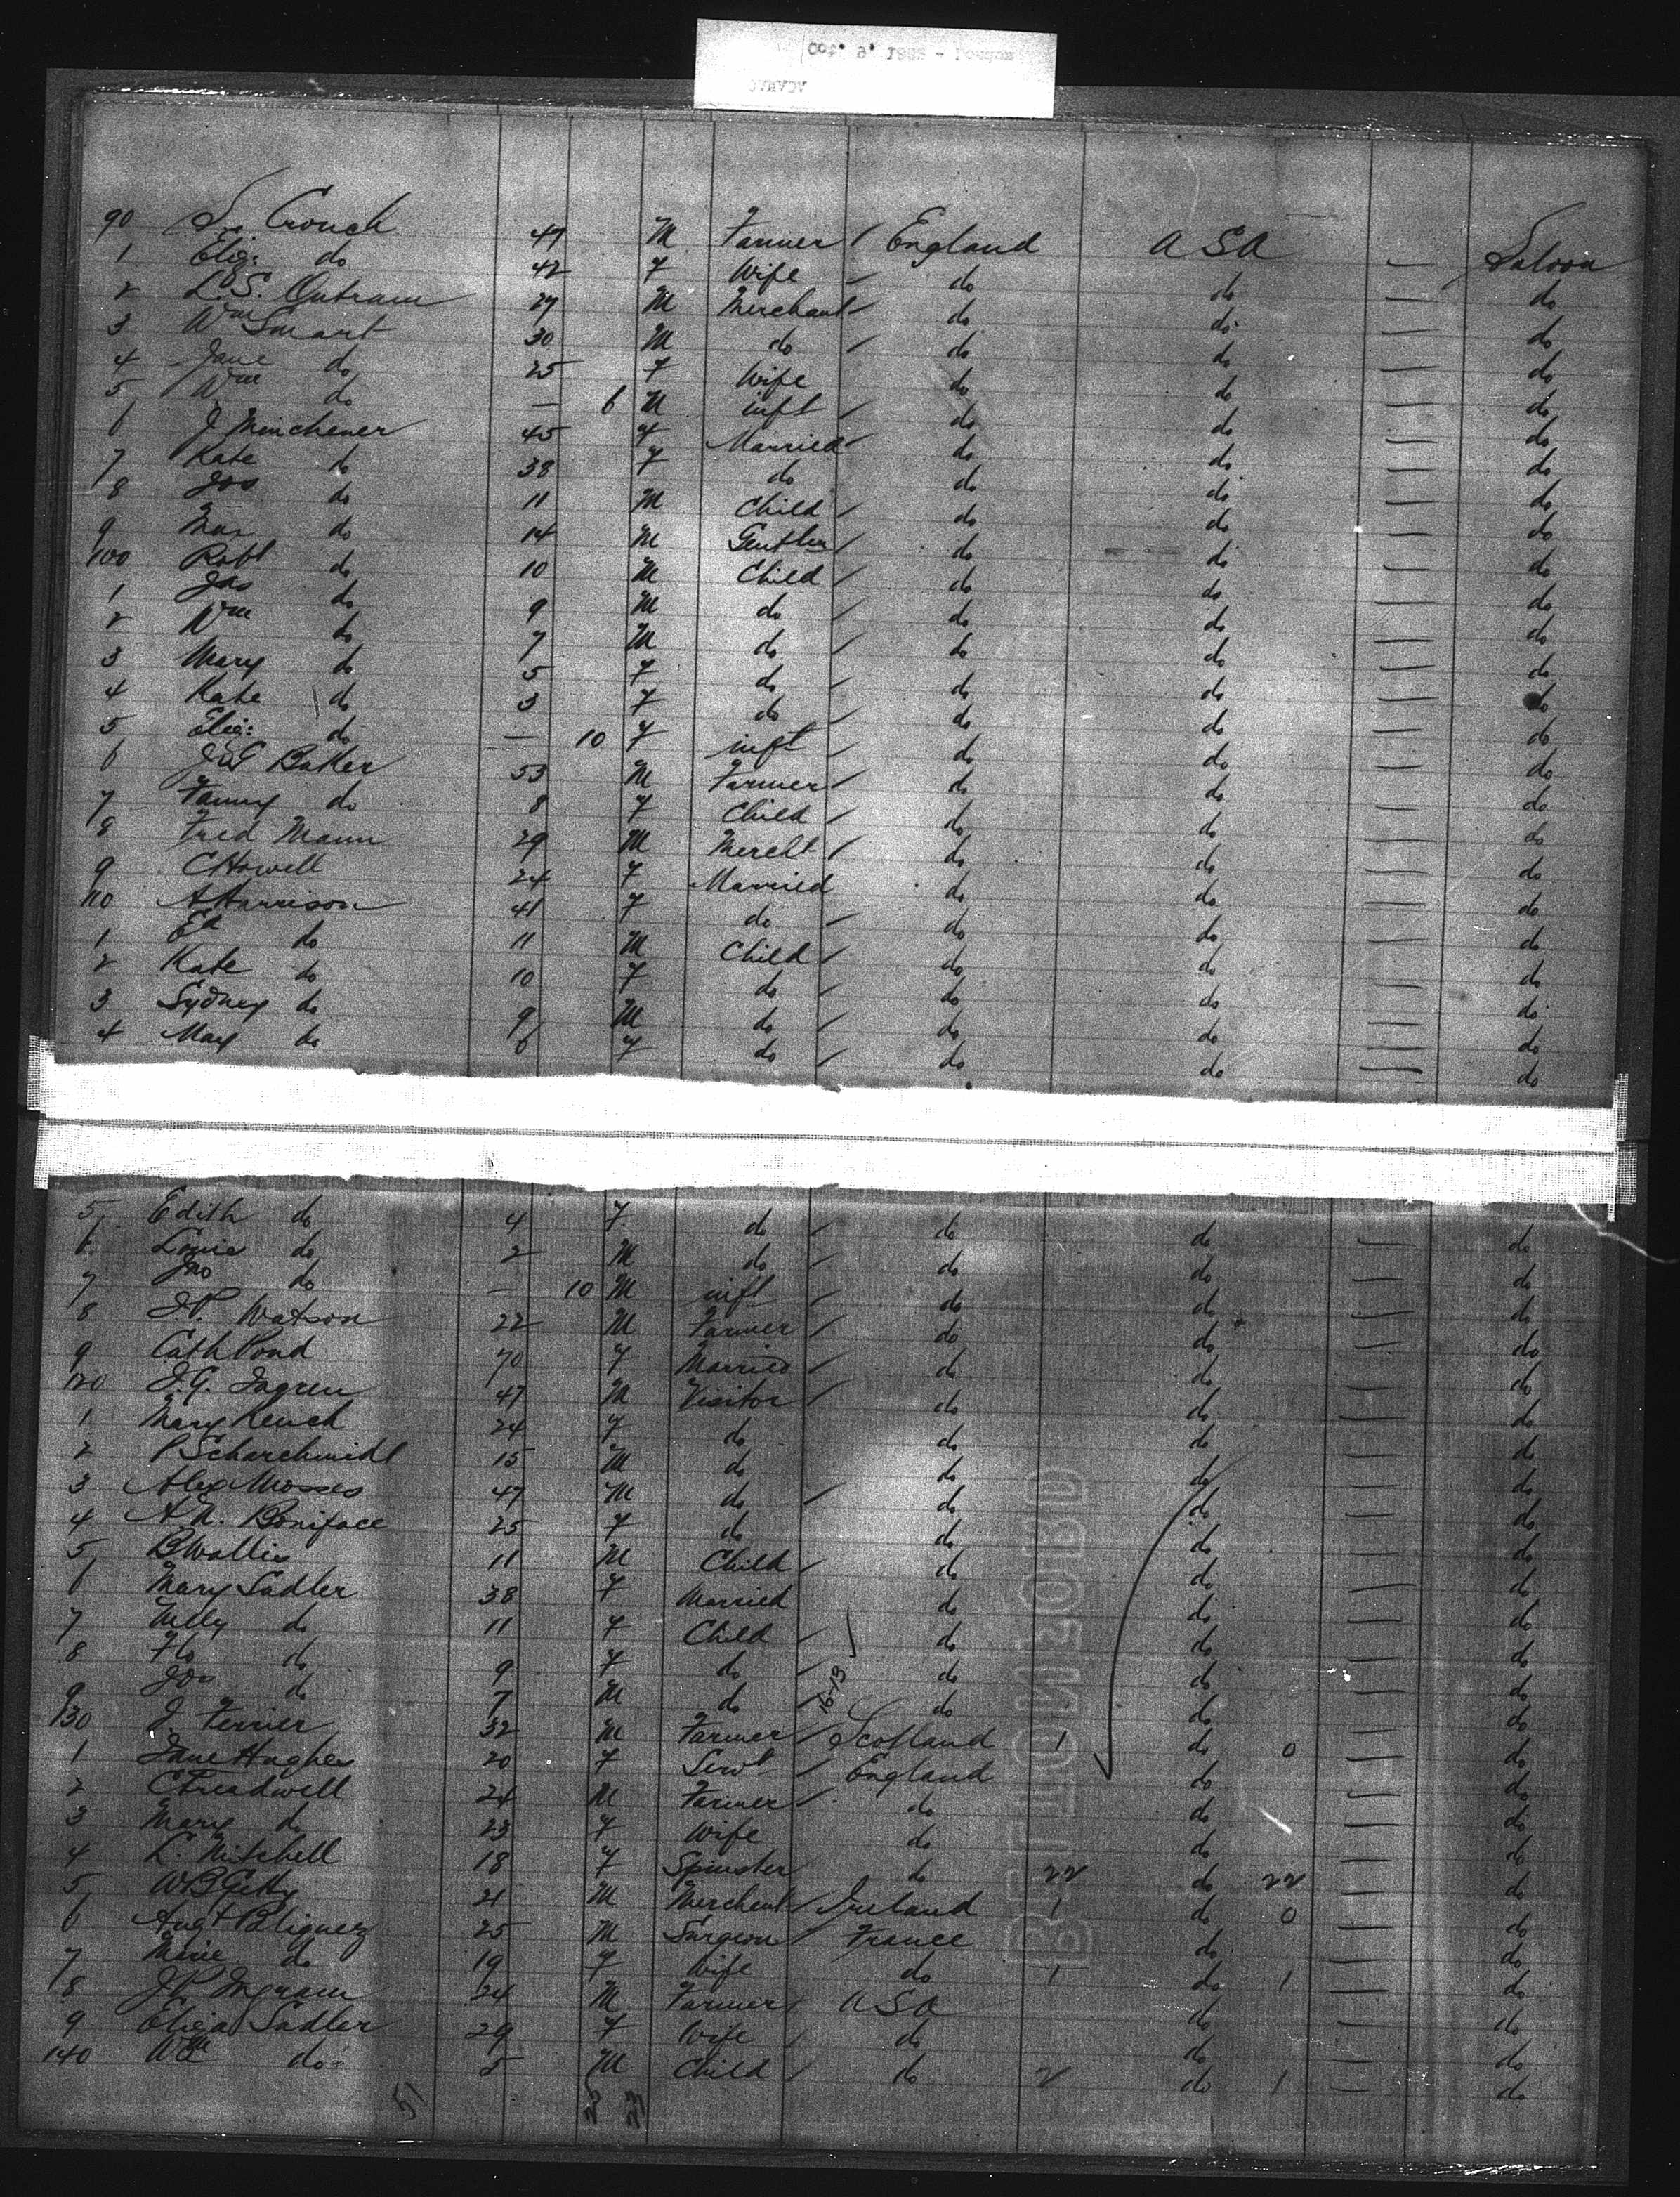 90 S. Crouch 47 M Farmer / England USA — Saloon
1 Eliz: do 42 F Wife do do — do
2 L.S. Outram 27 M Merchant do do — do
3 Wm Smart 30 M do / do do — do
4 Jane do 25 F Wife do do — do
5 Wm do — 6 M inft do do — do
6 J Minchener 45 F Married do do — do
7 Kate do 38 F do do do — do
8 Jos do 11 M Child do do — do
9 do 14 M Gentlen do do — do
100 Robt do 10 M Child do do — do
1 Jas do 9 M do / do do — do
2 Wm do 7 M do / do do — do
3 Mary do 5 F do do do — do
4 Kate do 3 F do do do — do
5 Eliz: do — 10 F inft do do — do
6 Baker 53 M Farmer do do — do
7 Fanny do 8 F Child do do — do
8 Fred Mann 29 M Mercht do do — do
9 C Howell 24 F Married do do — do
110 A Harrison 41 F do do do — do
1 do 11 M Child / do do — do
2 Kate do 10 F do do do — do
3 Sydney do 9 M do do do — do
4 May do 6 F do / do do — do
5 Edith do 4 F do / do do — do
6 Louie do 2 M do do do — do
7 Jno do — 10 M inft do do — do
8 J.P. Watson 22 M Farmer do do — do
9 Cath Pond 70 F Married do do — do
120 J.G. 47 M Visitor / do do — do
1 Mary 24 F do do do — do
2 P Scharchmidt 15 M do do do — do
3 Alex Mosses 47 M do / do do — do
4 A.N. Boniface 25 F do do do — do
5 B Wallis 11 M Child do do — do
6 Mary Sadler 38 F Married do do — do
7 do 11 F Child do do — do
8 Flo do 9 F do do do — do
9 Jos do 7 M do / do do — do
130 J. Ferrier 32 M Farmer / Scotland 1 do 0 — do
1 Jane Hughes 20 F Servt / England do — do
2 C Treadwell 24 M Farmer do do — do
3 Mary do 23 F Wife do do — do
4 L. Mitchell 18 F Spinster do 22 do 22 — do
5 W B Getty 21 M Merchant / Ireland 1 do 0 — do
6 Augt Bliguez 25 M Surgeon / France do — do
7 Marie do 19 F Wife do 1 do 1 — do
8 J.P. Ingram 24 M Farmer / USA do — do
9 Eliza Sadler 29 F Wife do do — do
140 Wm do 5 M Child / do 2 do 1 — do
51